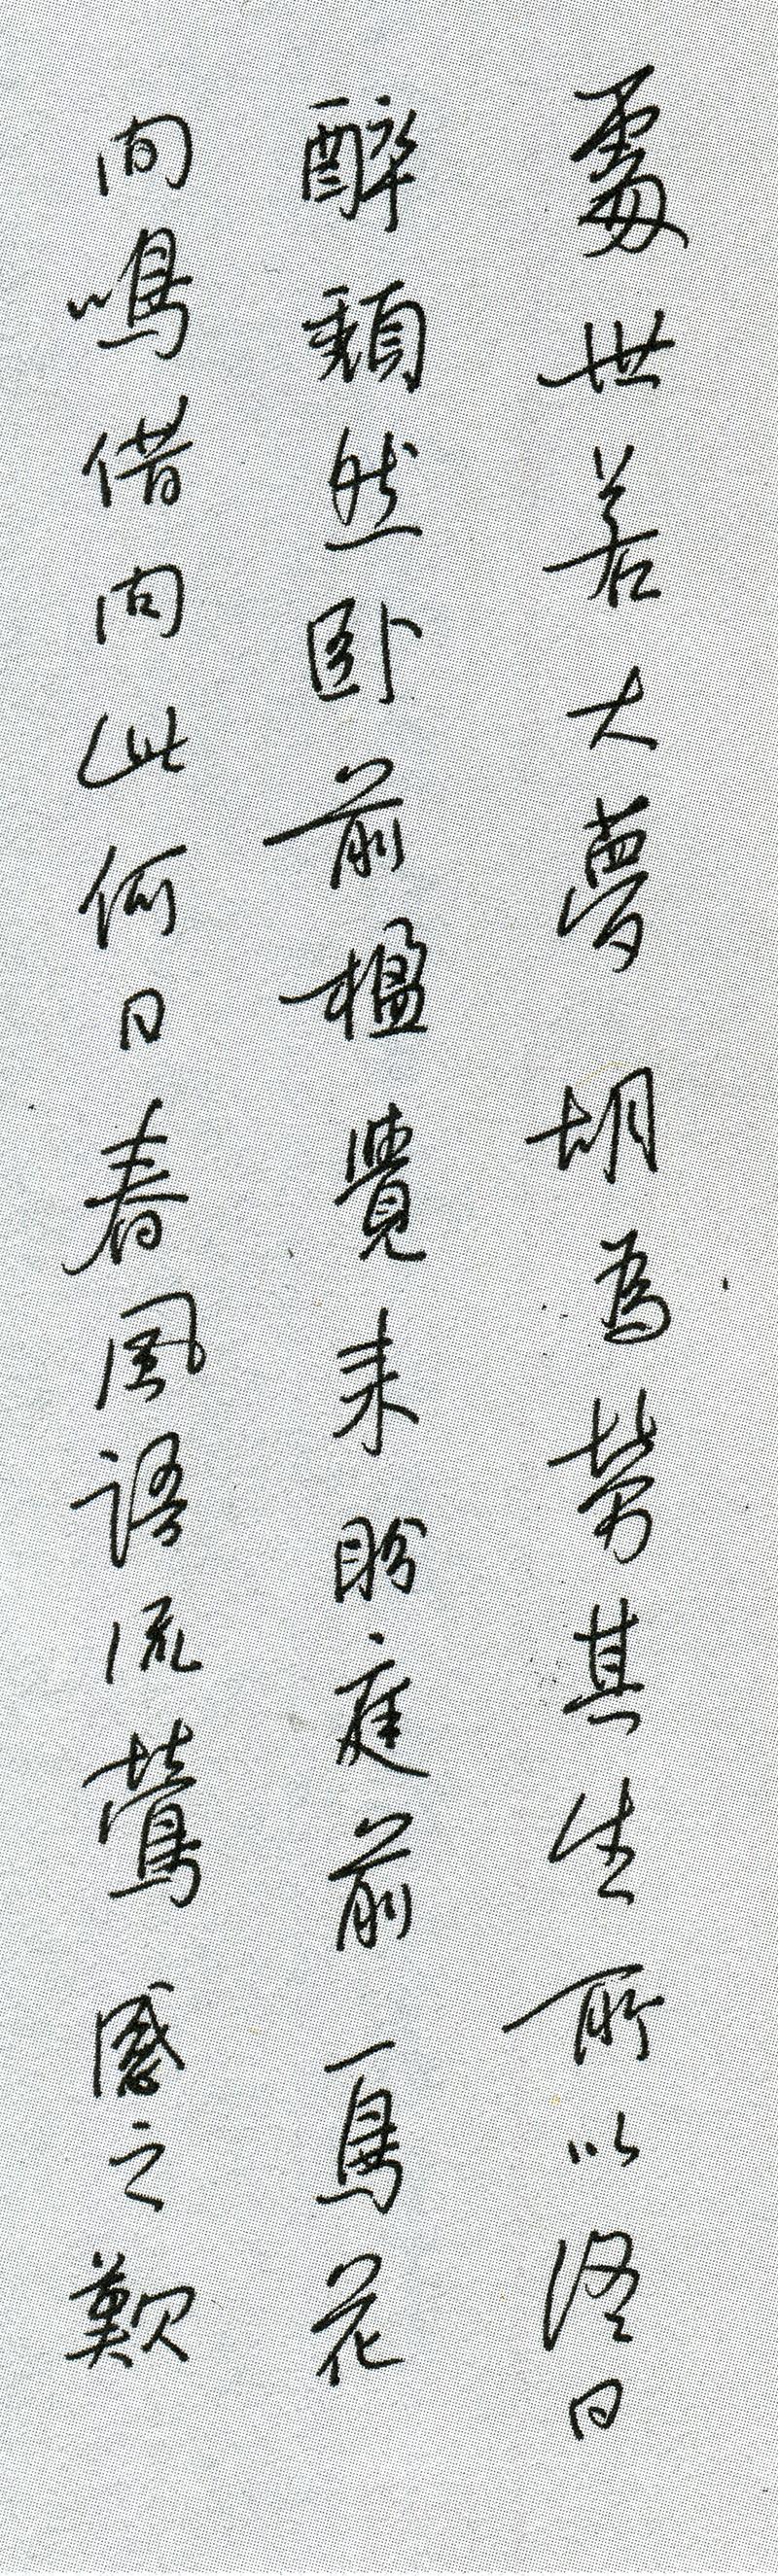 處世若大夢胡為勞其生所以終日
醉頹然卧前楹覺來盼庭前一鳥花
間鳴借問此何日春風語流鶯感之歎